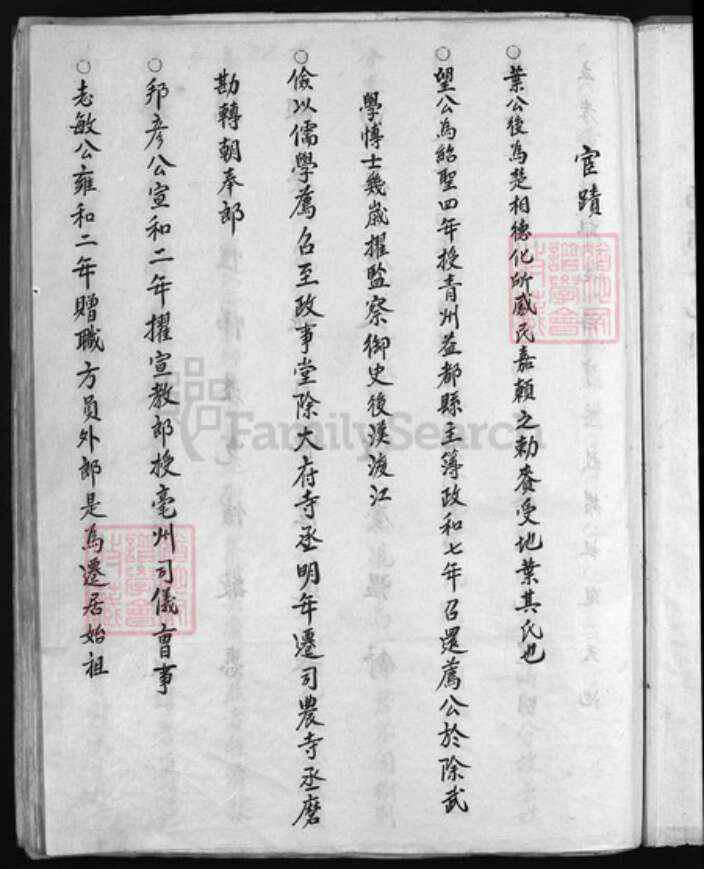 宦蹟
○葉公後為楚相德化所感民嘉賴之勅賽受地葉其氏也
○望公為紹聖四年授青州益都縣主簿政和七年召還薦公於除武
學愽士幾歲擢監察御史後渼渡江
○儉以儒學薦召至政事堂除大府寺丞明年遷司農寺丞磨
勘轉朝奉郎
○邦彥公宣和二年擢宣教郎授亳州司儀曹事
○志敏公雍和二年贈職方員外郎是為遷居始祖
FamilySearch